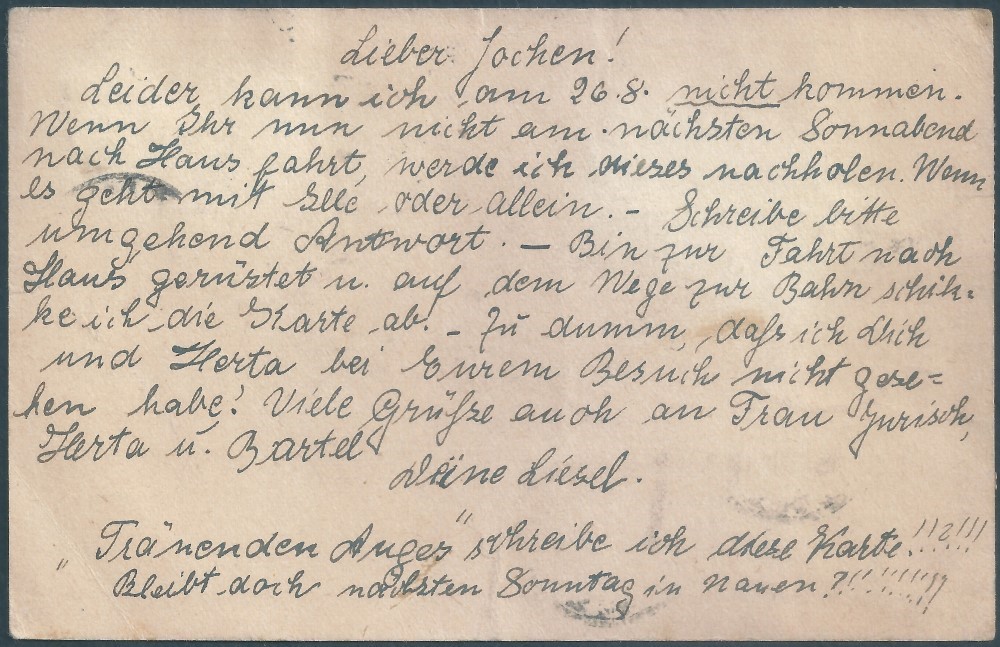 Lieber Jochen!
Leider kann ich am 26.8. nicht kommen.
Wenn Ihr nun nicht am nächsten Sonnabend
nach Haus fahrt, werde ich dieses nachholen. Wenn
es geht mit Elle oder allein. – Schreibe bitte
umgehend Antwort. – Bin zur Fahrt nach
Haus gerüstet u. auf dem Wege zur Bahn schik-
ke ich die Karte ab. – Zu dumm, daß ich Dich
und Herta bei Eurem Besuch nicht gese=
hen habe! Viele Grüße auch an Frau Jurisch,
Herta u. Bartel
Deine Liesel.
„Tränenden Auges" schreibe ich diese Karte!!!?!!!
Bleibt doch nächsten Sonntag in Nauen?!!!!!!!!!